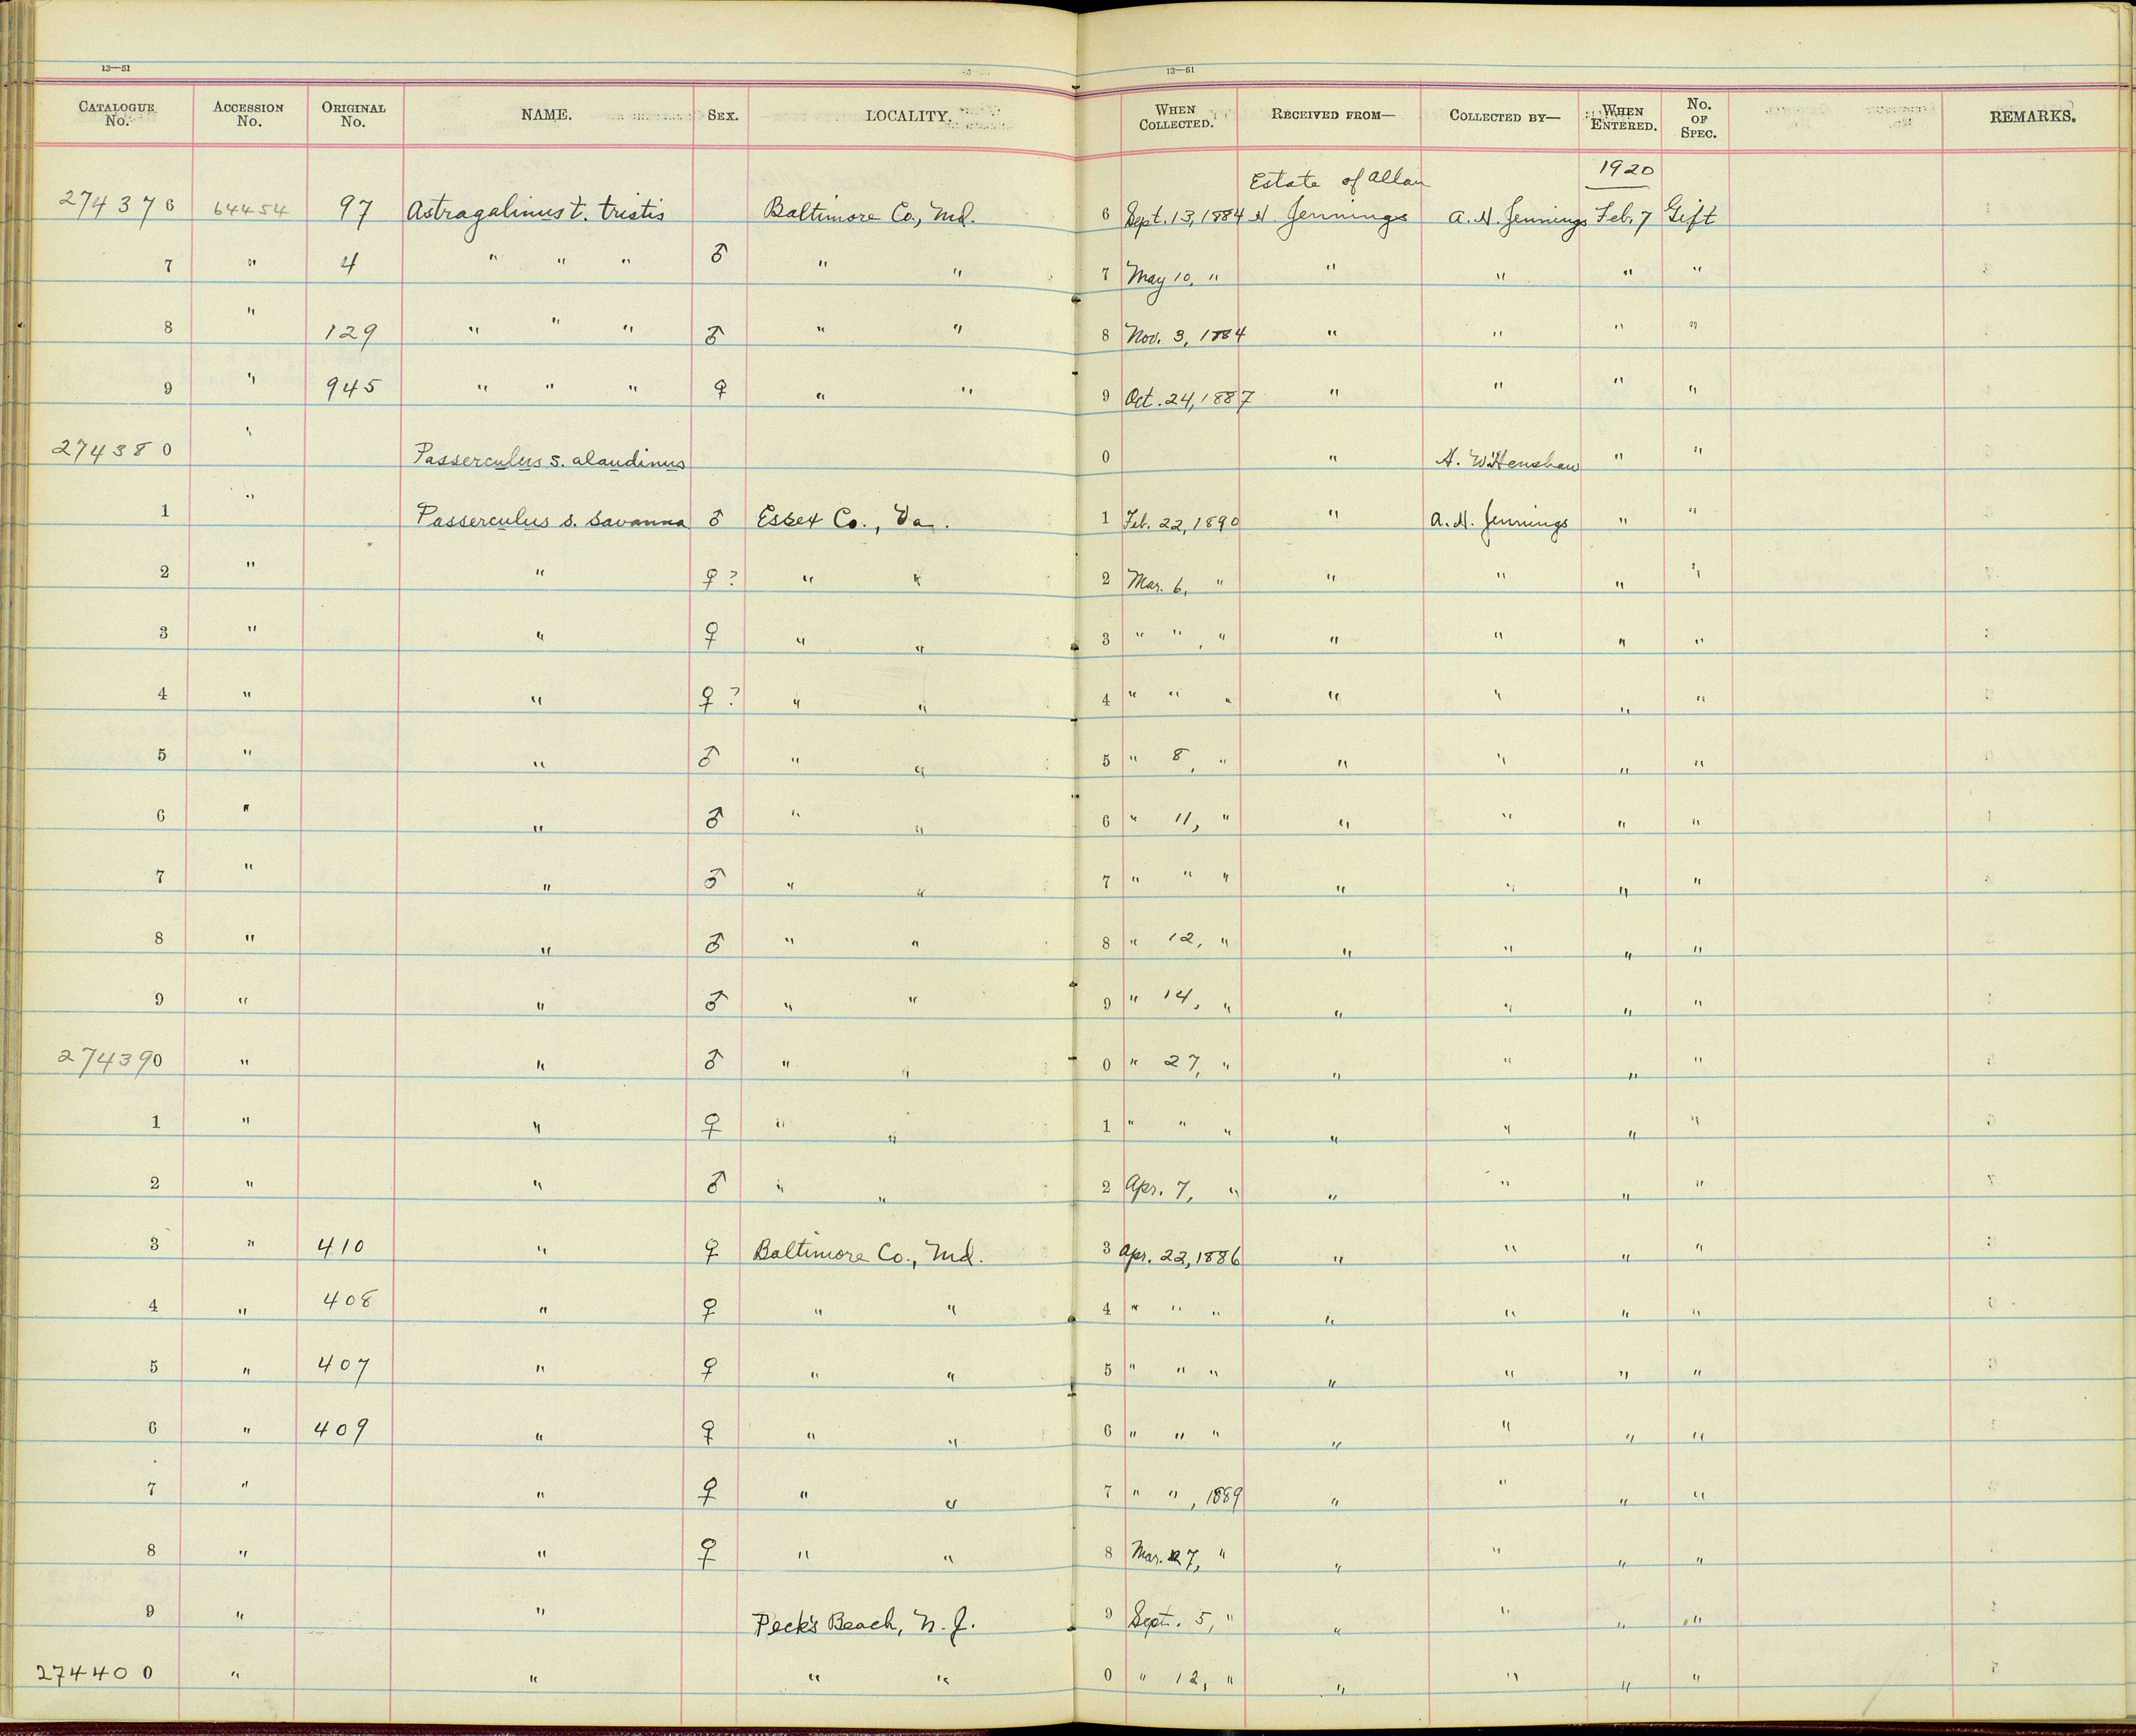 13—51 13—51
CATALOGUE No. ACCESSION No. ORIGINAL No. NAME. SEX. LOCALITY. WHEN COLLECTED. RECEIVED FROM— COLLECTED BY— WHEN ENTERED. No. OF SPEC. REMARKS.
Estate of Allan 1920
274376 64454 97 Astragalinus t. tristis Baltimore Co., Md. 6 Sept. 13, 1884 H. Jennings A. H. Jennings Feb. 7 Gift
7 " 4 " " " ♂ " " 7 May 10, " " " " "
8 " 129 " " " ♂ " " 8 Nov. 3, 1884 " " " "
9 " 945 " " " ♀ " " 9 Oct. 24, 1887 " " " "
274380 " Passerculus s. alaudinus 0 " H. W. Henshaw " "
1 " Passerculus s. savanna ♂ Essex Co., Va. 1 Feb. 22, 1890 " A. H. Jennings " "
2 " " ♀ ? " " 2 Mar. 6, " " " " "
3 " " ♀ " " 3 " " , " " " " "
4 " " ♀ ? " " 4 " " " " " " "
5 " " ♂ " " 5 " 8, " " " " "
6 " " ♂ " " 6 " 11, " " " " "
7 " " ♂ " " 7 " " " " " " "
8 " " ♂ " " 8 " 12, " " " " "
9 " " ♂ " " 9 " 14, " " " " "
274390 " " ♂ " " 0 " 27, " " " " "
1 " " ♀ " " 1 " " " " " " "
2 " " ♂ " " 2 Apr. 7, " " " " "
3 " 410 " ♀ Baltimore Co., Md. 3 Apr. 22, 1886 " " " "
4 " 408 " ♀ " " 4 " " " " " " "
5 " 407 " ♀ " " 5 " " " " " " "
6 " 409 " ♀ " " 6 " " " " " " "
7 " " ♀ " " 7 " " , 1889 " " " "
8 " " ♀ " " 8 Mar. 27, " " " " "
9 " " Peck's Beach, N. J. 9 Sept. 5, " " " " "
274400 " " " " 0 " 12, " " " " "